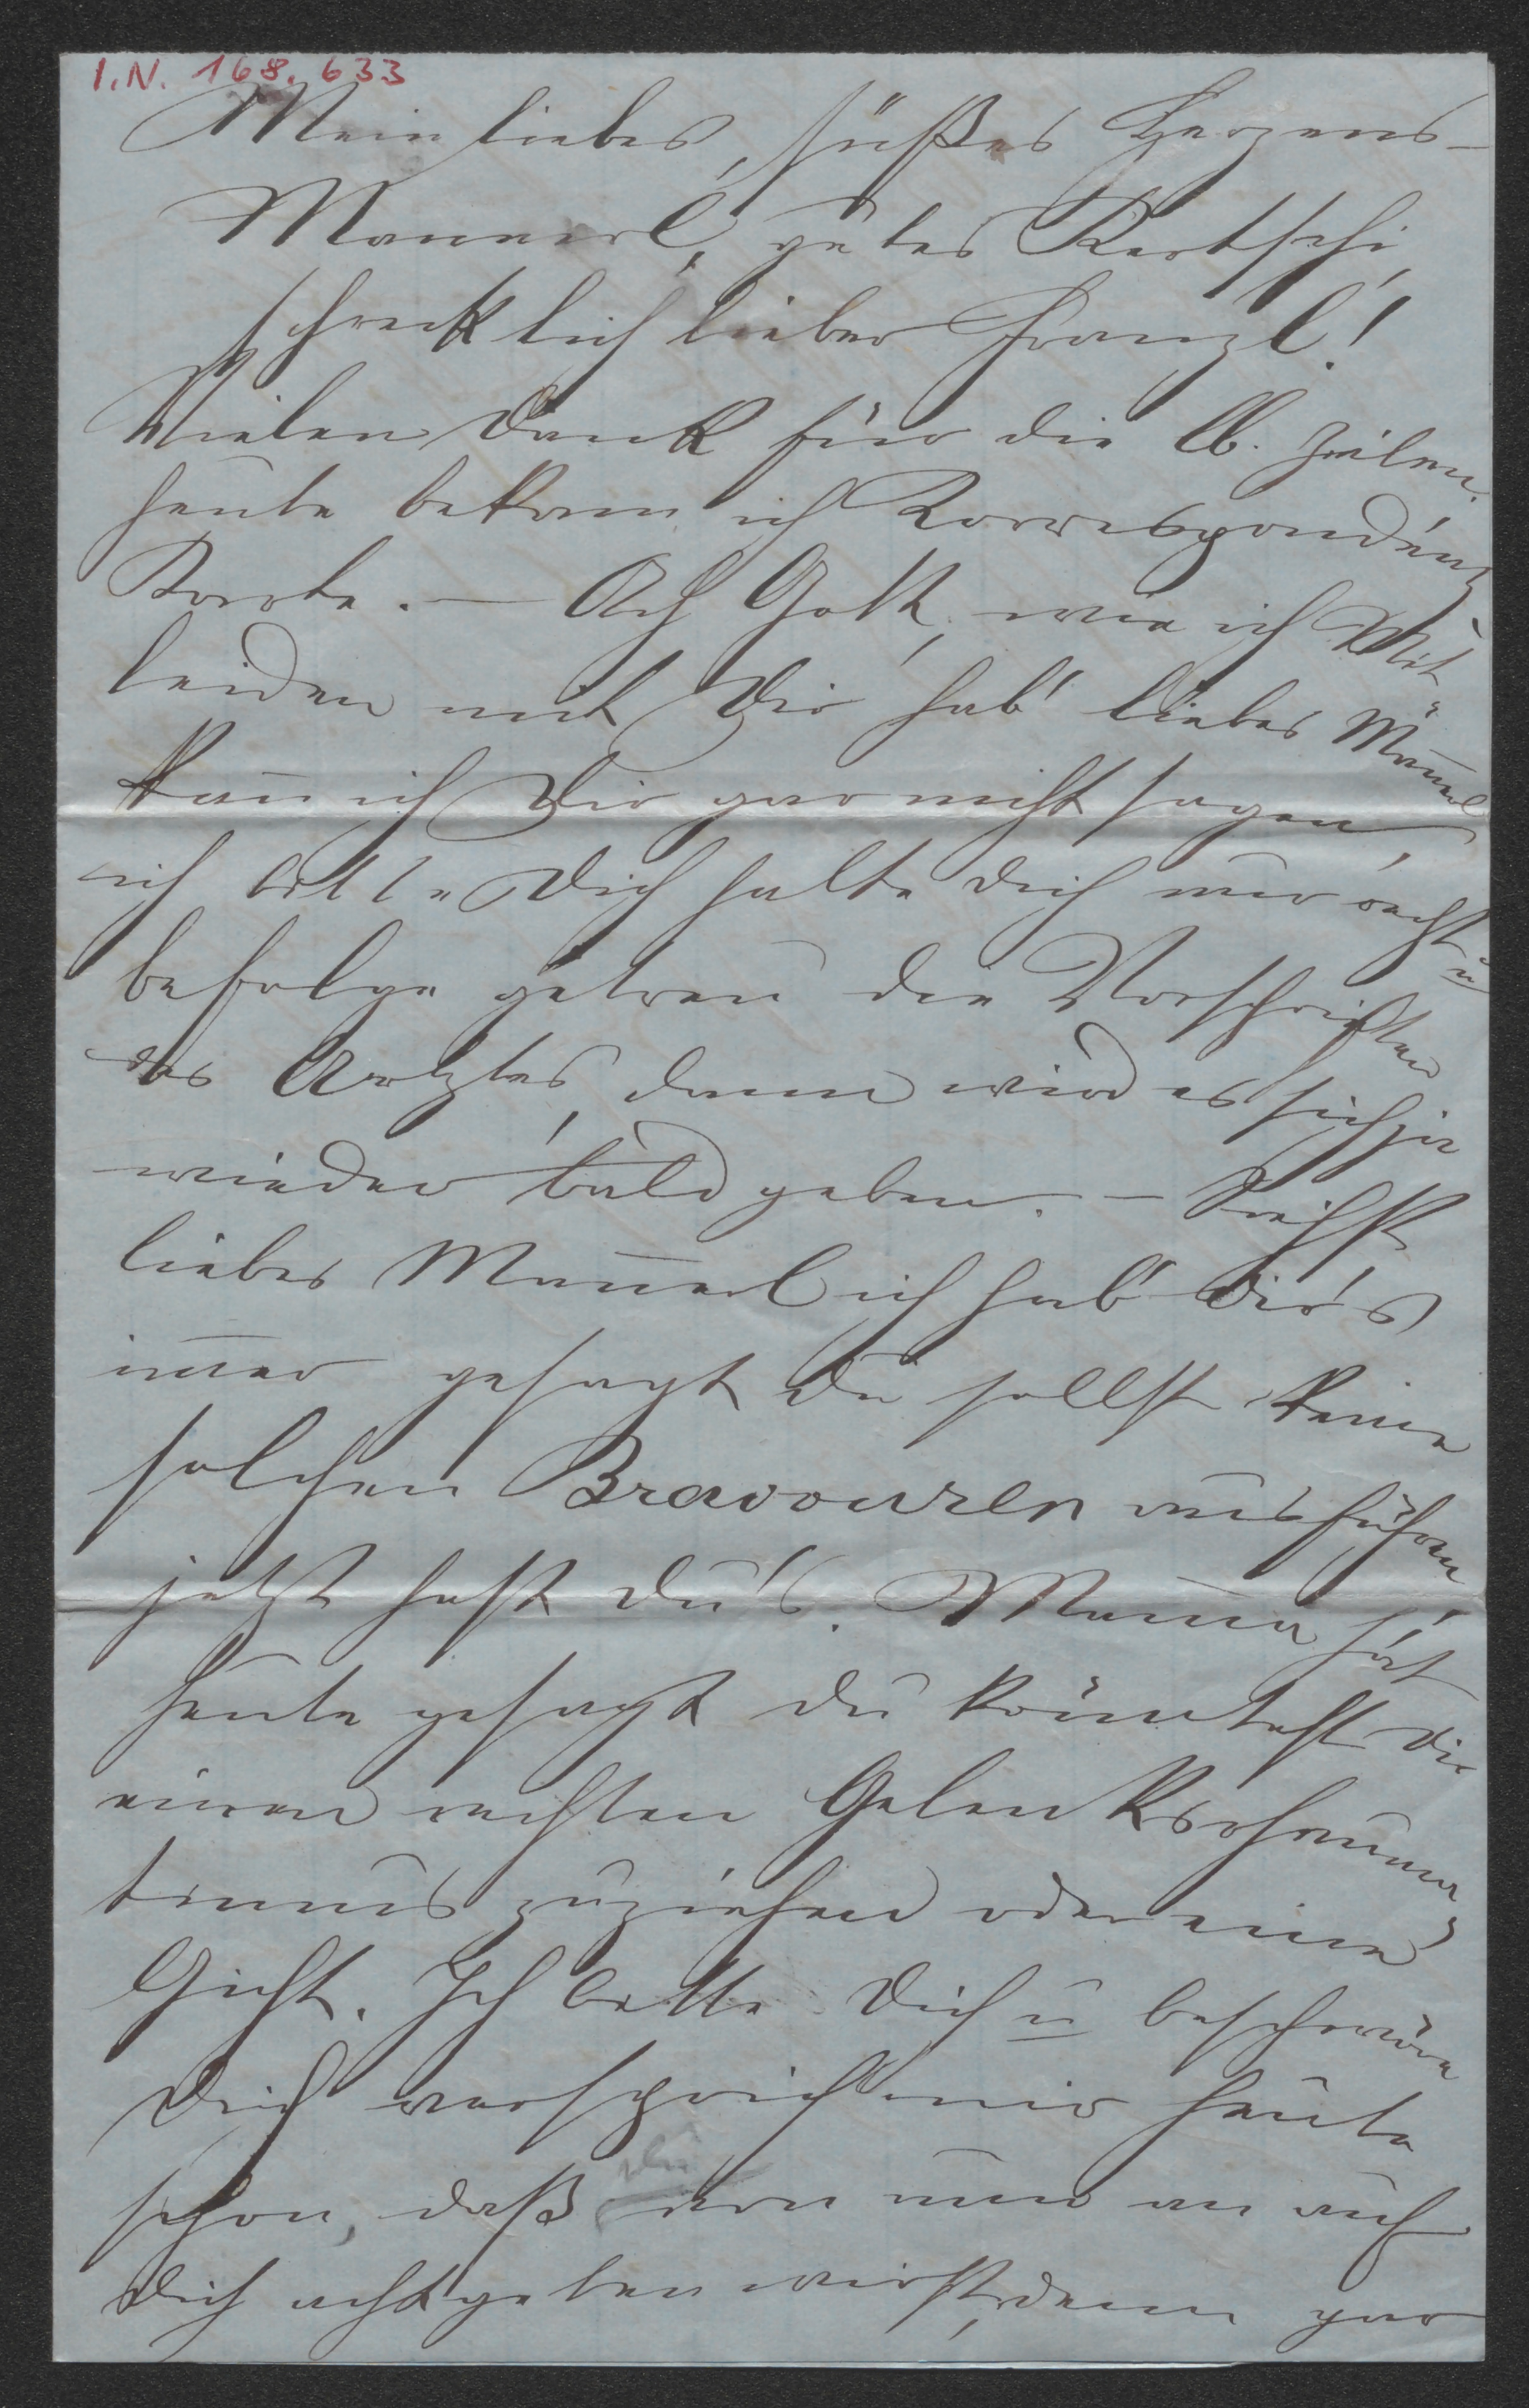 I.N. 168.633
Mein liebes, süßes Herzens-
Mannerl, gutes Kertschi,
schrecklich lieber Franzl!
Vielen Dank für die lb. Zeilen.
heute bekam ich Korrespondenz
Karte. – Ach Gott, wie ich Mit
leiden mit Dir hab' liebes Man̅erl
kan̅ ich Dir gar nicht sagen,
ich bitte Dich halte Dich nur recht u
befolge getreu die Vorschriften
des Arztes, dann wird es sich ja
wieder bald geben. – Siehst
liebes Man̅erl ich hab' Dir's
im̅er gesagt Du sollst keine
solchen Bravouren ausführen,
jetzt hast Du's. Mama hat
heute gesagt Du könntest Dir
einen rechten Gelenksrheuma-
tismus zuziehen oder eine
Gicht. Ich bitte Dich u beschwöre
Dich versprich mir heute
schon, daß du von nun an auf
Dich achtgeben wirst, denn gar